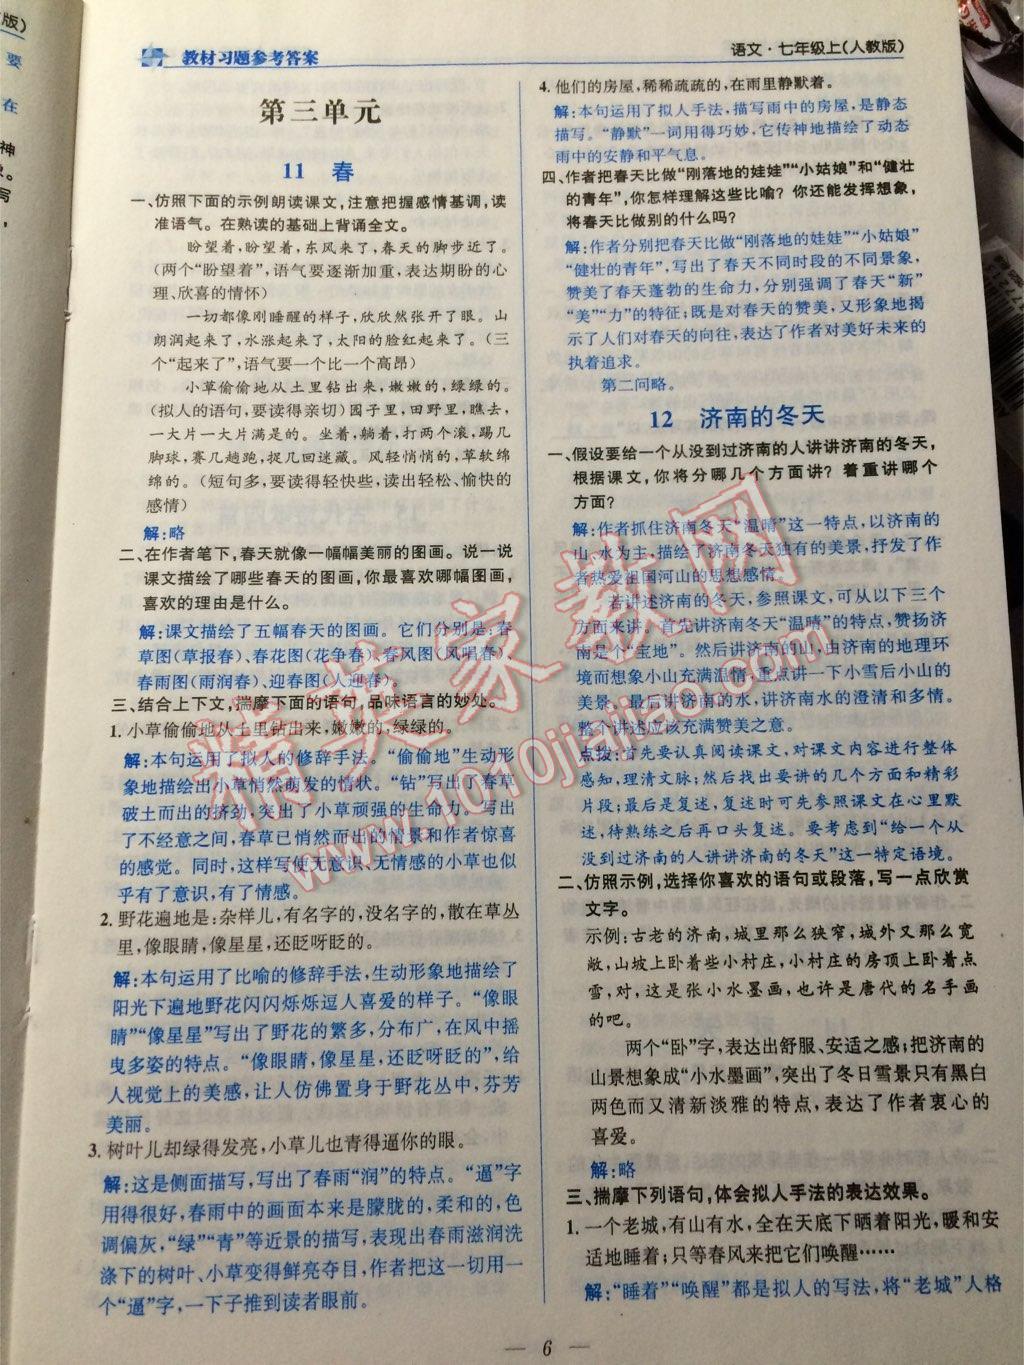 版)
要
在
神
写
教材习题参考答案
语文·七年级上(人教版)
第三单元
11 春
一、仿照下面的示例朗读课文,注意把握感情基调,读
准语气。在熟读的基础上背诵全文。
盼望着,盼望着,东风来了,春天的脚步近了。
(两个“盼望着”,语气要逐渐加重,表达期盼的心
理、欣喜的情怀)
一切都像刚睡醒的样子,欣欣然张开了眼。山
朗润起来了,水涨起来了,太阳的脸红起来了。(三
个“起来了”,语气要一个比一个高昂)
小草偷偷地从土里钻出来,嫩嫩的,绿绿的。
(拟人的语句,要读得亲切)园子里,田野里,瞧去,
一大片一大片满是的。坐着,躺着,打两个滚,踢几
脚球,赛几趟跑,捉几回迷藏。风轻悄悄的,草软绵
绵的。(短句多,要读得轻快些,读出轻松、愉快的
感情)
解:略
二、在作者笔下,春天就像一幅幅美丽的图画。说一说
课文描绘了哪些春天的图画,你最喜欢哪幅图画,
喜欢的理由是什么。
解:课文描绘了五幅春天的图画。它们分别是:春
草图(草报春)、春花图(花争春)、春风图(风唱春)、
春雨图(雨润春)、迎春图(人迎春)。
三、结合上下文,揣摩下面的语句,品味语言的妙处。
1. 小草偷偷地从土里钻出来,嫩嫩的,绿绿的。
解:本句运用了拟人的修辞手法。“偷偷地”生动形
象地描绘出小草悄然萌发的情状。“钻”写出了春草
破土而出的挤劲,突出了小草顽强的生命力。写出
了不经意之间,春草已悄然而出的情景和作者惊喜
的感觉。同时,这样写使无意识、无情感的小草也似
乎有了意识,有了情感。
2. 野花遍地是:杂样儿,有名字的,没名字的,散在草丛
里,像眼睛,像星星,还眨呀眨的。
解:本句运用了比喻的修辞手法,生动形象地描绘了
阳光下遍地野花闪闪烁烁逗人喜爱的样子。“像眼
睛”“像星星”写出了野花的繁多,分布广,在风中摇
曳多姿的特点。“像眼睛,像星星,还眨呀眨的”,给
人视觉上的美感,让人仿佛置身于野花丛中,芬芳
美丽。
3. 树叶儿却绿得发亮,小草儿也青得逼你的眼。
解:这是侧面描写,写出了春雨“润”的特点。“逼”字
用得很好,春雨中的画面本来是朦胧的,柔和的,色
调偏灰,“绿”“青”等近景的描写,表现出春雨滋润洗
涤下的树叶、小草变得鲜亮夺目,作者在这里仅用
一个“逼”字,一下子推到读者眼前。
4. 他们的房屋,稀稀疏疏的,在雨里静默着。
解:本句运用了拟人手法,描写雨中的房屋,是静态
描写。“静默”一词用得巧妙,它传神地描绘了动态
雨中的安静和平气息。
四、作者把春天比做“刚落地的娃娃”“小姑娘”和“健壮
的青年”,你怎样理解这些比喻?你还能发挥想象,
将春天比做别的什么吗?
解:作者分别把春天比做“刚落地的娃娃”“小姑娘”
“健壮的青年”,写出了春天不同时段的不同景象,
赞美了春天蓬勃的生命力,分别强调了春天“新”
“美”“力”的特征;既是对春天的赞美,又形象地揭
示了人们对春天的向往,表达了作者对美好未来的
执着追求。
第二问略。
12 济南的冬天
一、假设要给一个从没到过济南的人讲讲济南的冬天,
根据课文,你将分哪几个方面讲?着重讲哪个
方面?
解:作者抓住济南冬天“温晴”这一特点,以济南的
山、水为主,描绘了济南冬天独有的美景,抒发了作
者热爱祖国河山的思想感情。
若讲述济南的冬天,参照课文,可从以下三个
方面来讲。首先讲济南冬天“温晴”的特点,赞扬济
南是个“宝地”。然后讲济南的山,由济南的地理环
境而想象小山充满温情,重点讲一下小雪后小山的
美景。最后讲济南的水,讲济南水的澄清和多情。
整个讲述应该充满赞美之意。
点拨:首先要认真阅读课文,对课文内容进行整体
感知,理清文脉;然后找出要讲的几个方面和精彩
片段;最后是复述,复述时可先参照课文在心里默
述,待熟练之后再口头复述。要考虑到“给一个从
没到过济南的人讲讲济南的冬天”这一特定语境。
二、仿照示例,选择你喜欢的语句或段落,写一点欣赏
文字。
示例:古老的济南,城里那么狭窄,城外又那么宽
敞,山坡上卧着些小村庄,小村庄的房顶上卧着点
雪,对,这是张小水墨画,也许是唐代的名手画
的吧。
两个“卧”字,表达出舒服、安适之感;把济南的
山景想象成“小水墨画”,突出了冬日雪景只有黑白
两色而又清新淡雅的特点,表达了作者衷心的
喜爱。
解:略
三、揣摩下列语句,体会拟人手法的表达效果。
1. 一个老城,有山有水,全在天底下晒着阳光,暖和安
适地睡着;只等春风来把它们唤醒……
解:“睡着”“唤醒”都是拟人的写法,将“老城”人格
— 6 —
精英家教网
www.1010jiajiao.com